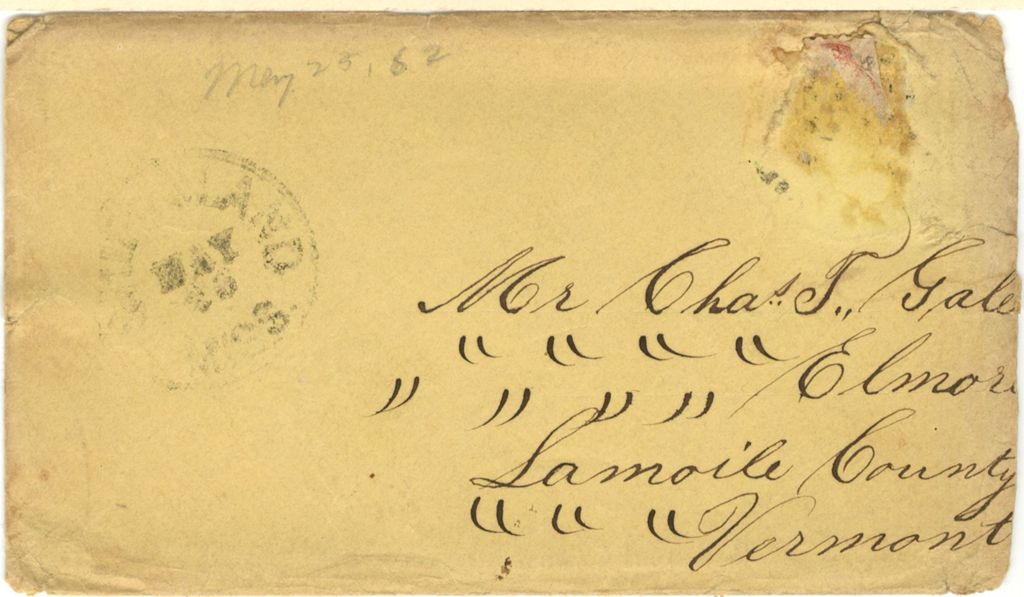 May 25, 62
MAY
25
Mr Chas. T., Gale
" " " "
" " " " Elmore
Lamoile County
" " " Vermont